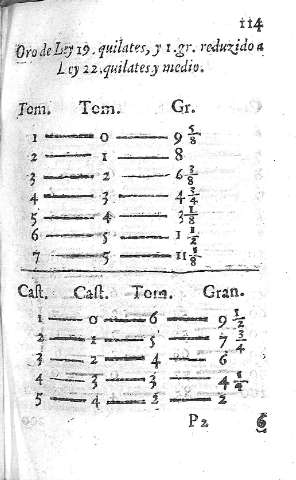 114
Oro de Ley 19. quilates, y 1. gr. reduzido a
Ley 22. quilates y medio.
Tom. Tom. Gr.
1 — 0 — 9 5/8
2 — 1 — 8
3 — 2 — 6 3/8
4 — 3 — 4 3/4
5 — 4 — 3 1/8
6 — 5 — 1 1/2
7 — 5 — 11 7/8
Cast. Cast. Tom. Gran.
1 — 0 — 6 — 9 1/2
2 — 1 — 5 — 7 3/4
3 — 2 — 4 — 6
4 — 3 — 3 — 4 1/4
5 — 4 — 2 — 2
P2 6